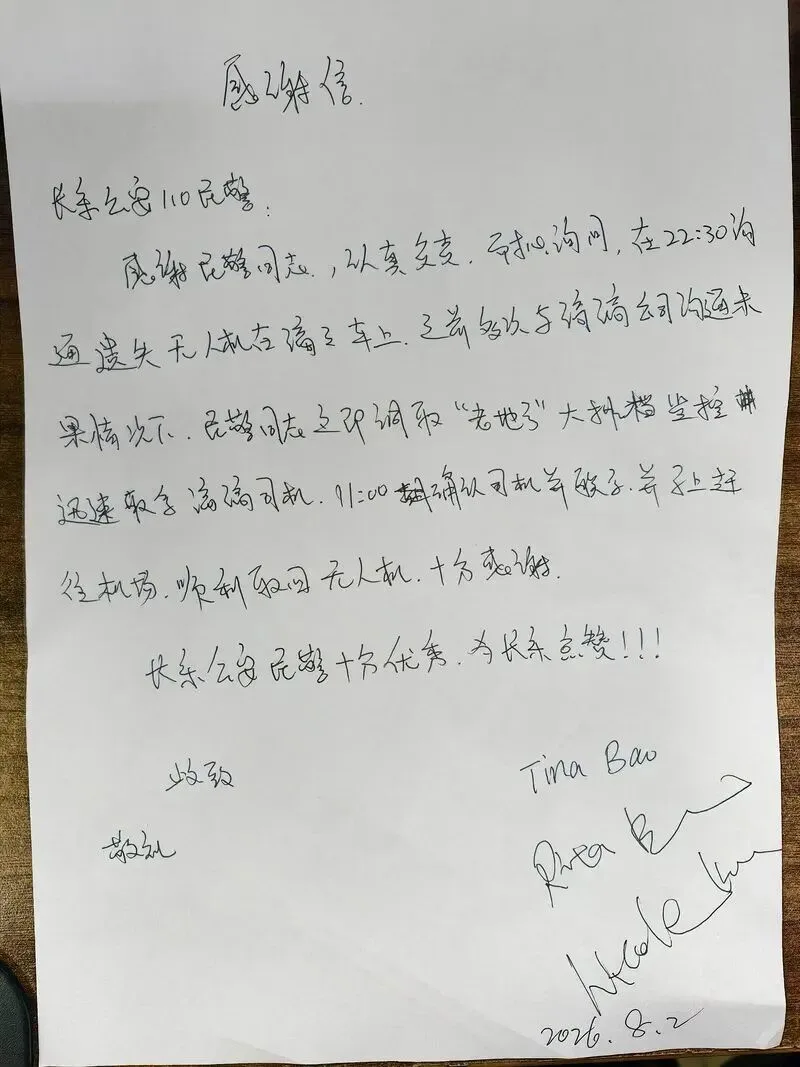 感谢信.
长乐公安110民警:
感谢民警同志,认真负责.耐心询问,在22:30沟
通遗失无人机在滴滴车上.之前多次与滴滴公司沟通未
果情况下.民警同志立即调取“老地方”大排档监控
迅速联系滴滴司机.11:00 确认司机并联系.并马上赶
往机场.顺利取回无人机.十分感谢.
长乐公安民警十分优秀.为长乐点赞!!!
此致
敬礼
Tina Bao
Rita
Nicole
2026.8.2